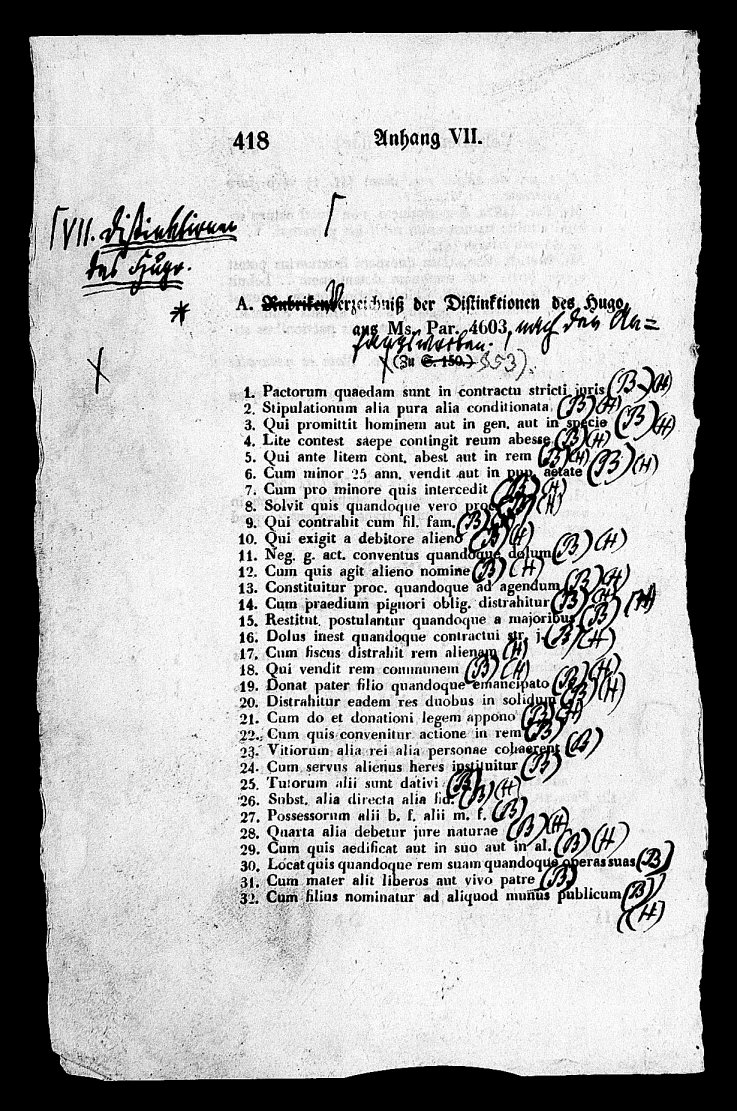 418 Anhang VII.
[VII. Distinktionen
des Hugo.
*
A. Rubrikenverzeichniß der Distinktionen des Hugo
aus Ms. Par. 4603, nach den An=
fangsworten.
(Zu S. 150.) 353).
1. Pactorum quaedam sunt in contractu stricti juris (B) (H)
2. Stipulationum alia pura alia conditionata (B) (H)
3. Qui promittit hominem aut in gen. aut in specie (B) (H)
4. Lite contest saepe contingit reum abesse (B) (H)
5. Qui ante litem cont. abest aut in rem (B) (H)
6. Cum minor 25 ann. vendit aut in pup. aetate (B) (H)
7. Cum pro minore quis intercedit (B) (H)
8. Solvit quis quandoque vero proc. (B) (H)
9. Qui contrahit cum fil. fam. (B) (H)
10. Qui exigit a debitore alieno (B) (H)
11. Neg. g. act. conventus quandoque dolum (B) (H)
12. Cum quis agit alieno nomine (B) (H)
13. Constituitur proc. quandoque ad agendum (B) (H)
14. Cum praedium pignori oblig. distrahitur (B) (H)
15. Restitut. postulantur quandoque a majoribus (B) (H)
16. Dolus inest quandoque contractui str. j. (B) (H)
17. Cum fiscus distrahit rem alienam (H)
18. Qui vendit rem communem (B) (H)
19. Donat pater filio quandoque emancipato (B) (H)
20. Distrahitur eadem res duobus in solidum (B) (H)
21. Cum do et donationi legem appono (B) (H)
22. Cum quis convenitur actione in rem (B)
23. Vitiorum alia rei alia personae cohaerent (B)
24. Cum servus alienus heres instituitur (B)
25. Tutorum alii sunt dativi (B)
26. Subst. alia directa alia fid. (B) (H)
27. Possessorum alii b. f. alii m. f. (B)
28. Quarta alia debetur jure naturae (B) (H)
29. Cum quis aedificat aut in suo aut in al. (B) (H)
30. Locat quis quandoque rem suam quandoque operas suas (B)
31. Cum mater alit liberos aut vivo patre (B)
32. Cum filius nominatur ad aliquod munus publicum (B)
(H)